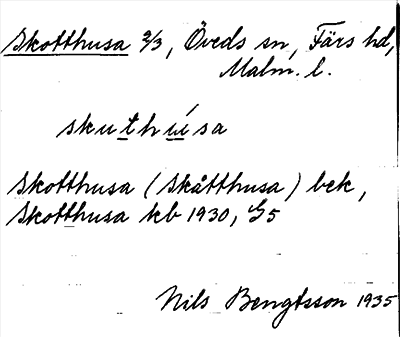 Skotthusa 2/3, Öveds sn, Färs hd,
Malm. l.
skuthúsa
Skotthusa (Skåtthusa) bek,
Skotthusa kb 1930, G5
Nils Bengtsson 1935